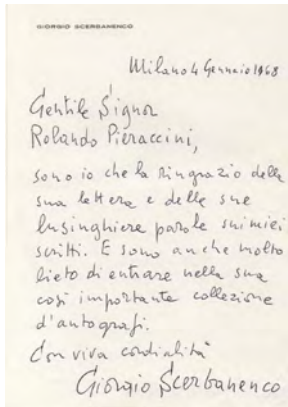 GIORGIO SCERBANENCO
Milano 4 Gennaio 1968
Gentile Signor
Rolando Pieraccini,
sono io che la ringrazio della
sua lettera e delle sue
lusinghiere parole sui miei
scritti. E sono anche molto
lieto di entrare nella sua
così importante collezione
d'autografi.
Con viva cordialità
Giorgio Scerbanenco